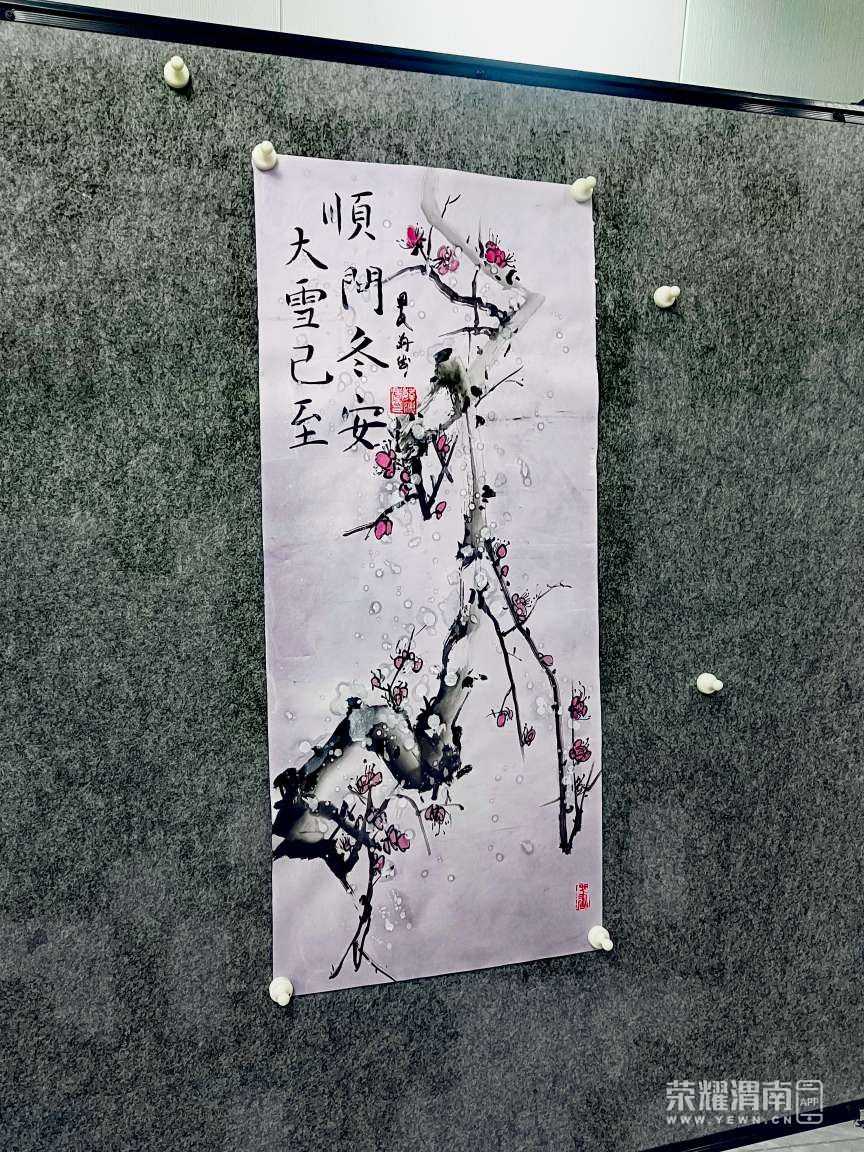 大雪已至
順問冬安
荣耀渭南
APP
WWW.YEWN.CN